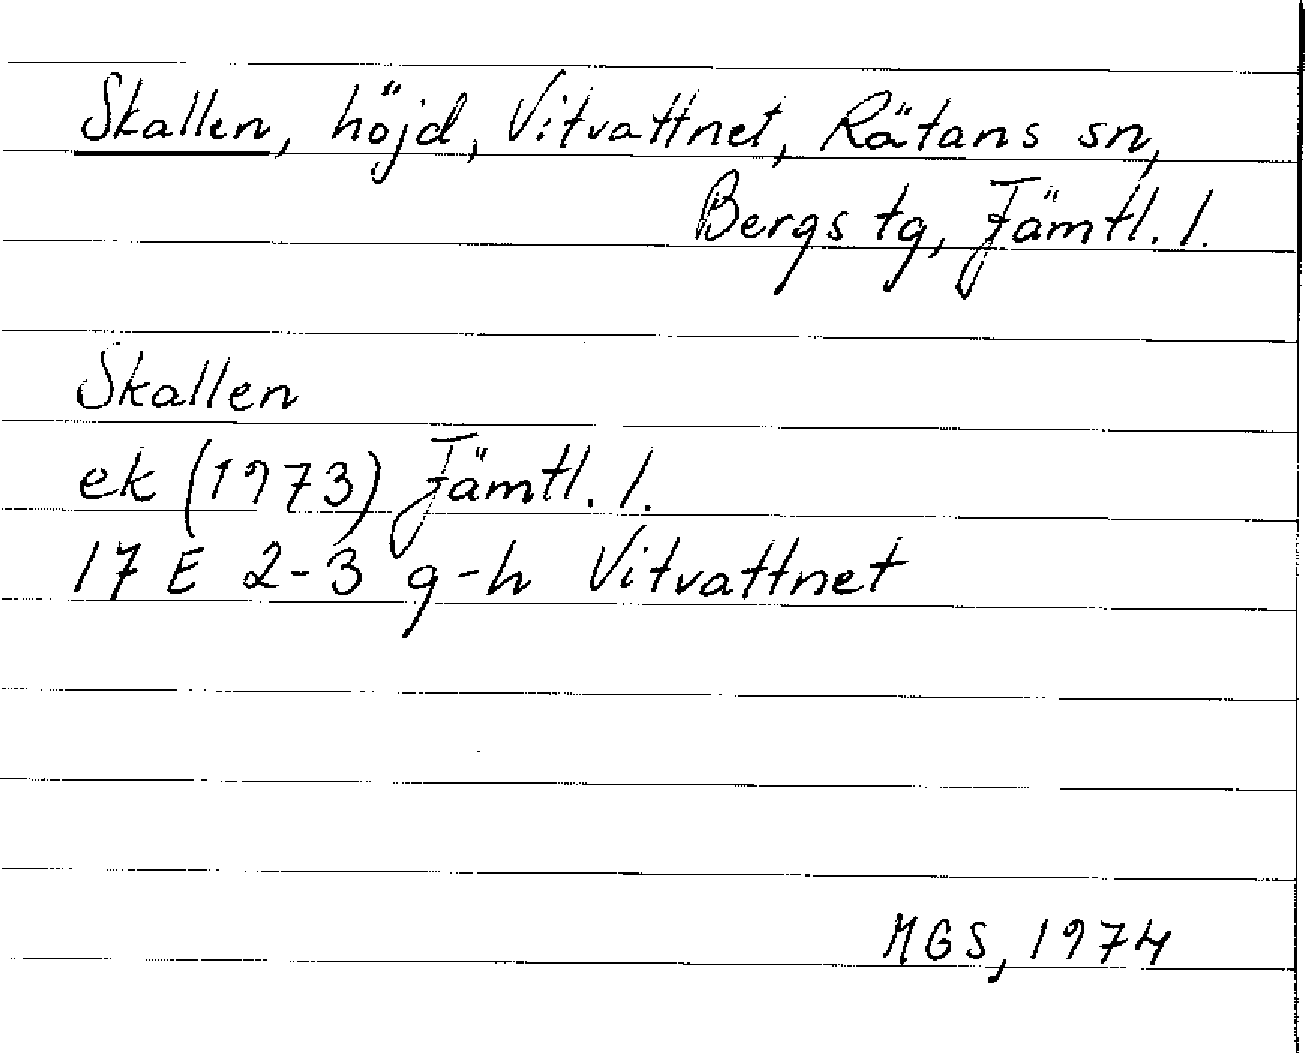 Skallen, höjd, Vitvattnet, Rätans sn,
Bergs tg, Jämtl. l.
Skallen
ek (1973) Jämtl. l.
17 E 2-3 g-h Vitvattnet
MGS, 1974